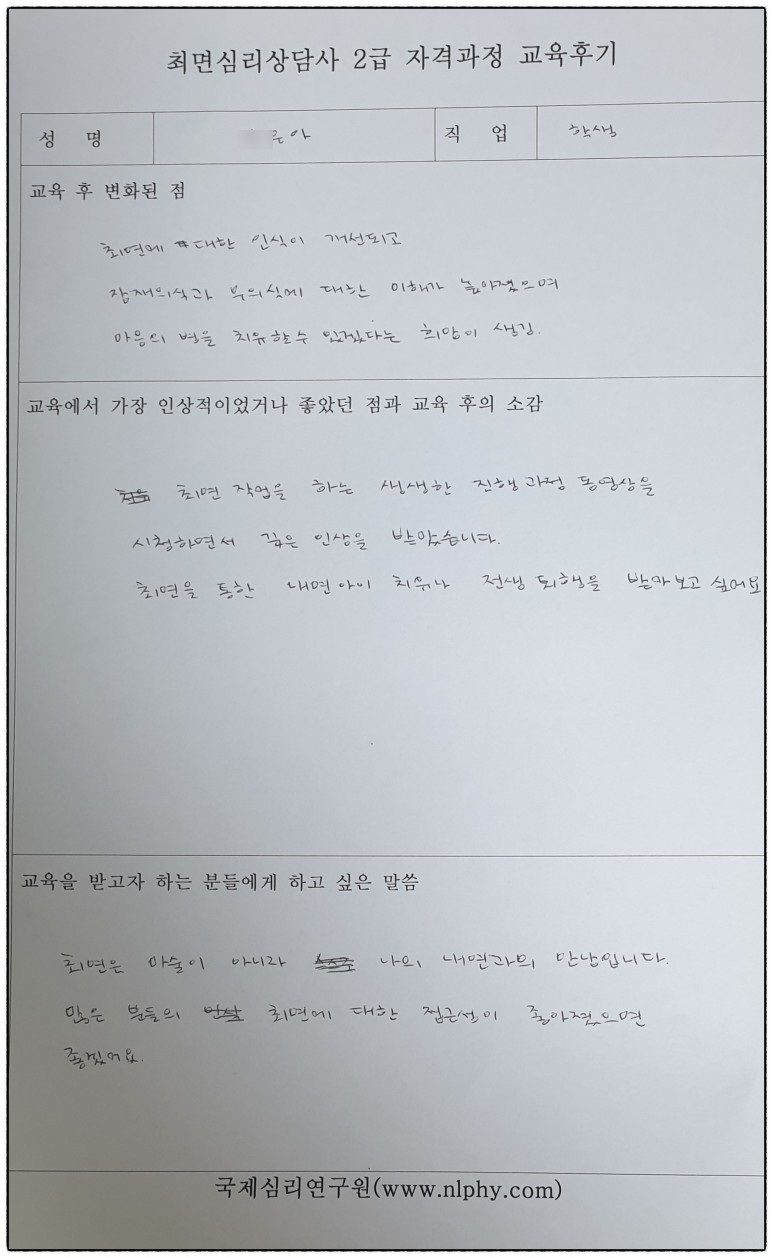 최면심리상담사 2급 자격과정 교육후기
성 명 은아 직 업 학생
교육 후 변화된 점
최면에 대한 인식이 개선되고
잠재의식과 무의식에 대한 이해가 높아졌으며
마음의 병을 치유할수 있겠다는 희망이 생김.
교육에서 가장 인상적이었거나 좋았던 점과 교육 후의 소감
최면 작업을 하는 생생한 진행과정 동영상을
시청하면서 깊은 인상을 받았습니다.
최면을 통한 내면아이 치유나 전생 퇴행을 받아보고 싶어요
교육을 받고자 하는 분들에게 하고 싶은 말씀
최면은 마술이 아니라 나의 내면과의 만남입니다.
많은 분들의 최면에 대한 접근성이 좋아졌으면
좋겠어요.
국제심리연구원(www.nlphy.com)